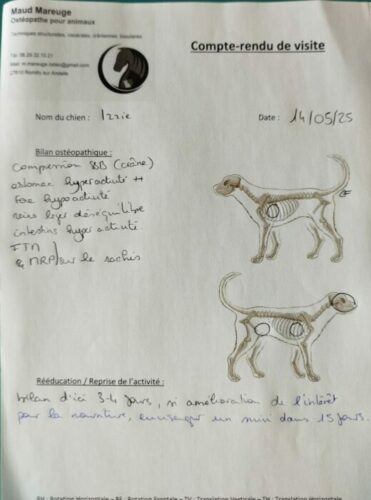 Maud Mareuge
Ostéopathe pour animaux
Techniques structurelles, viscérales, crâniennes, tissulaires
Compte-rendu de visite
Nom du chien : Izzie
Date : 14/05/25
Bilan ostéopathique :
compression SSB (crâne)
estomac hyperactivité ++
foie hypoactivité
reins léger déséquilibre
intestins hyperactivité
FTM
& NRP sur le rachis
Rééducation / Reprise de l'activité :
bilan d'ici 3-4 jours, si amélioration de l'intérêt
pour la nourriture, envisager un suivi dans 15 jours.
RH : Rotation Horizontale – RF : Rotation Frontale – TV : Translation Verticale – TH : Translation Horizontale